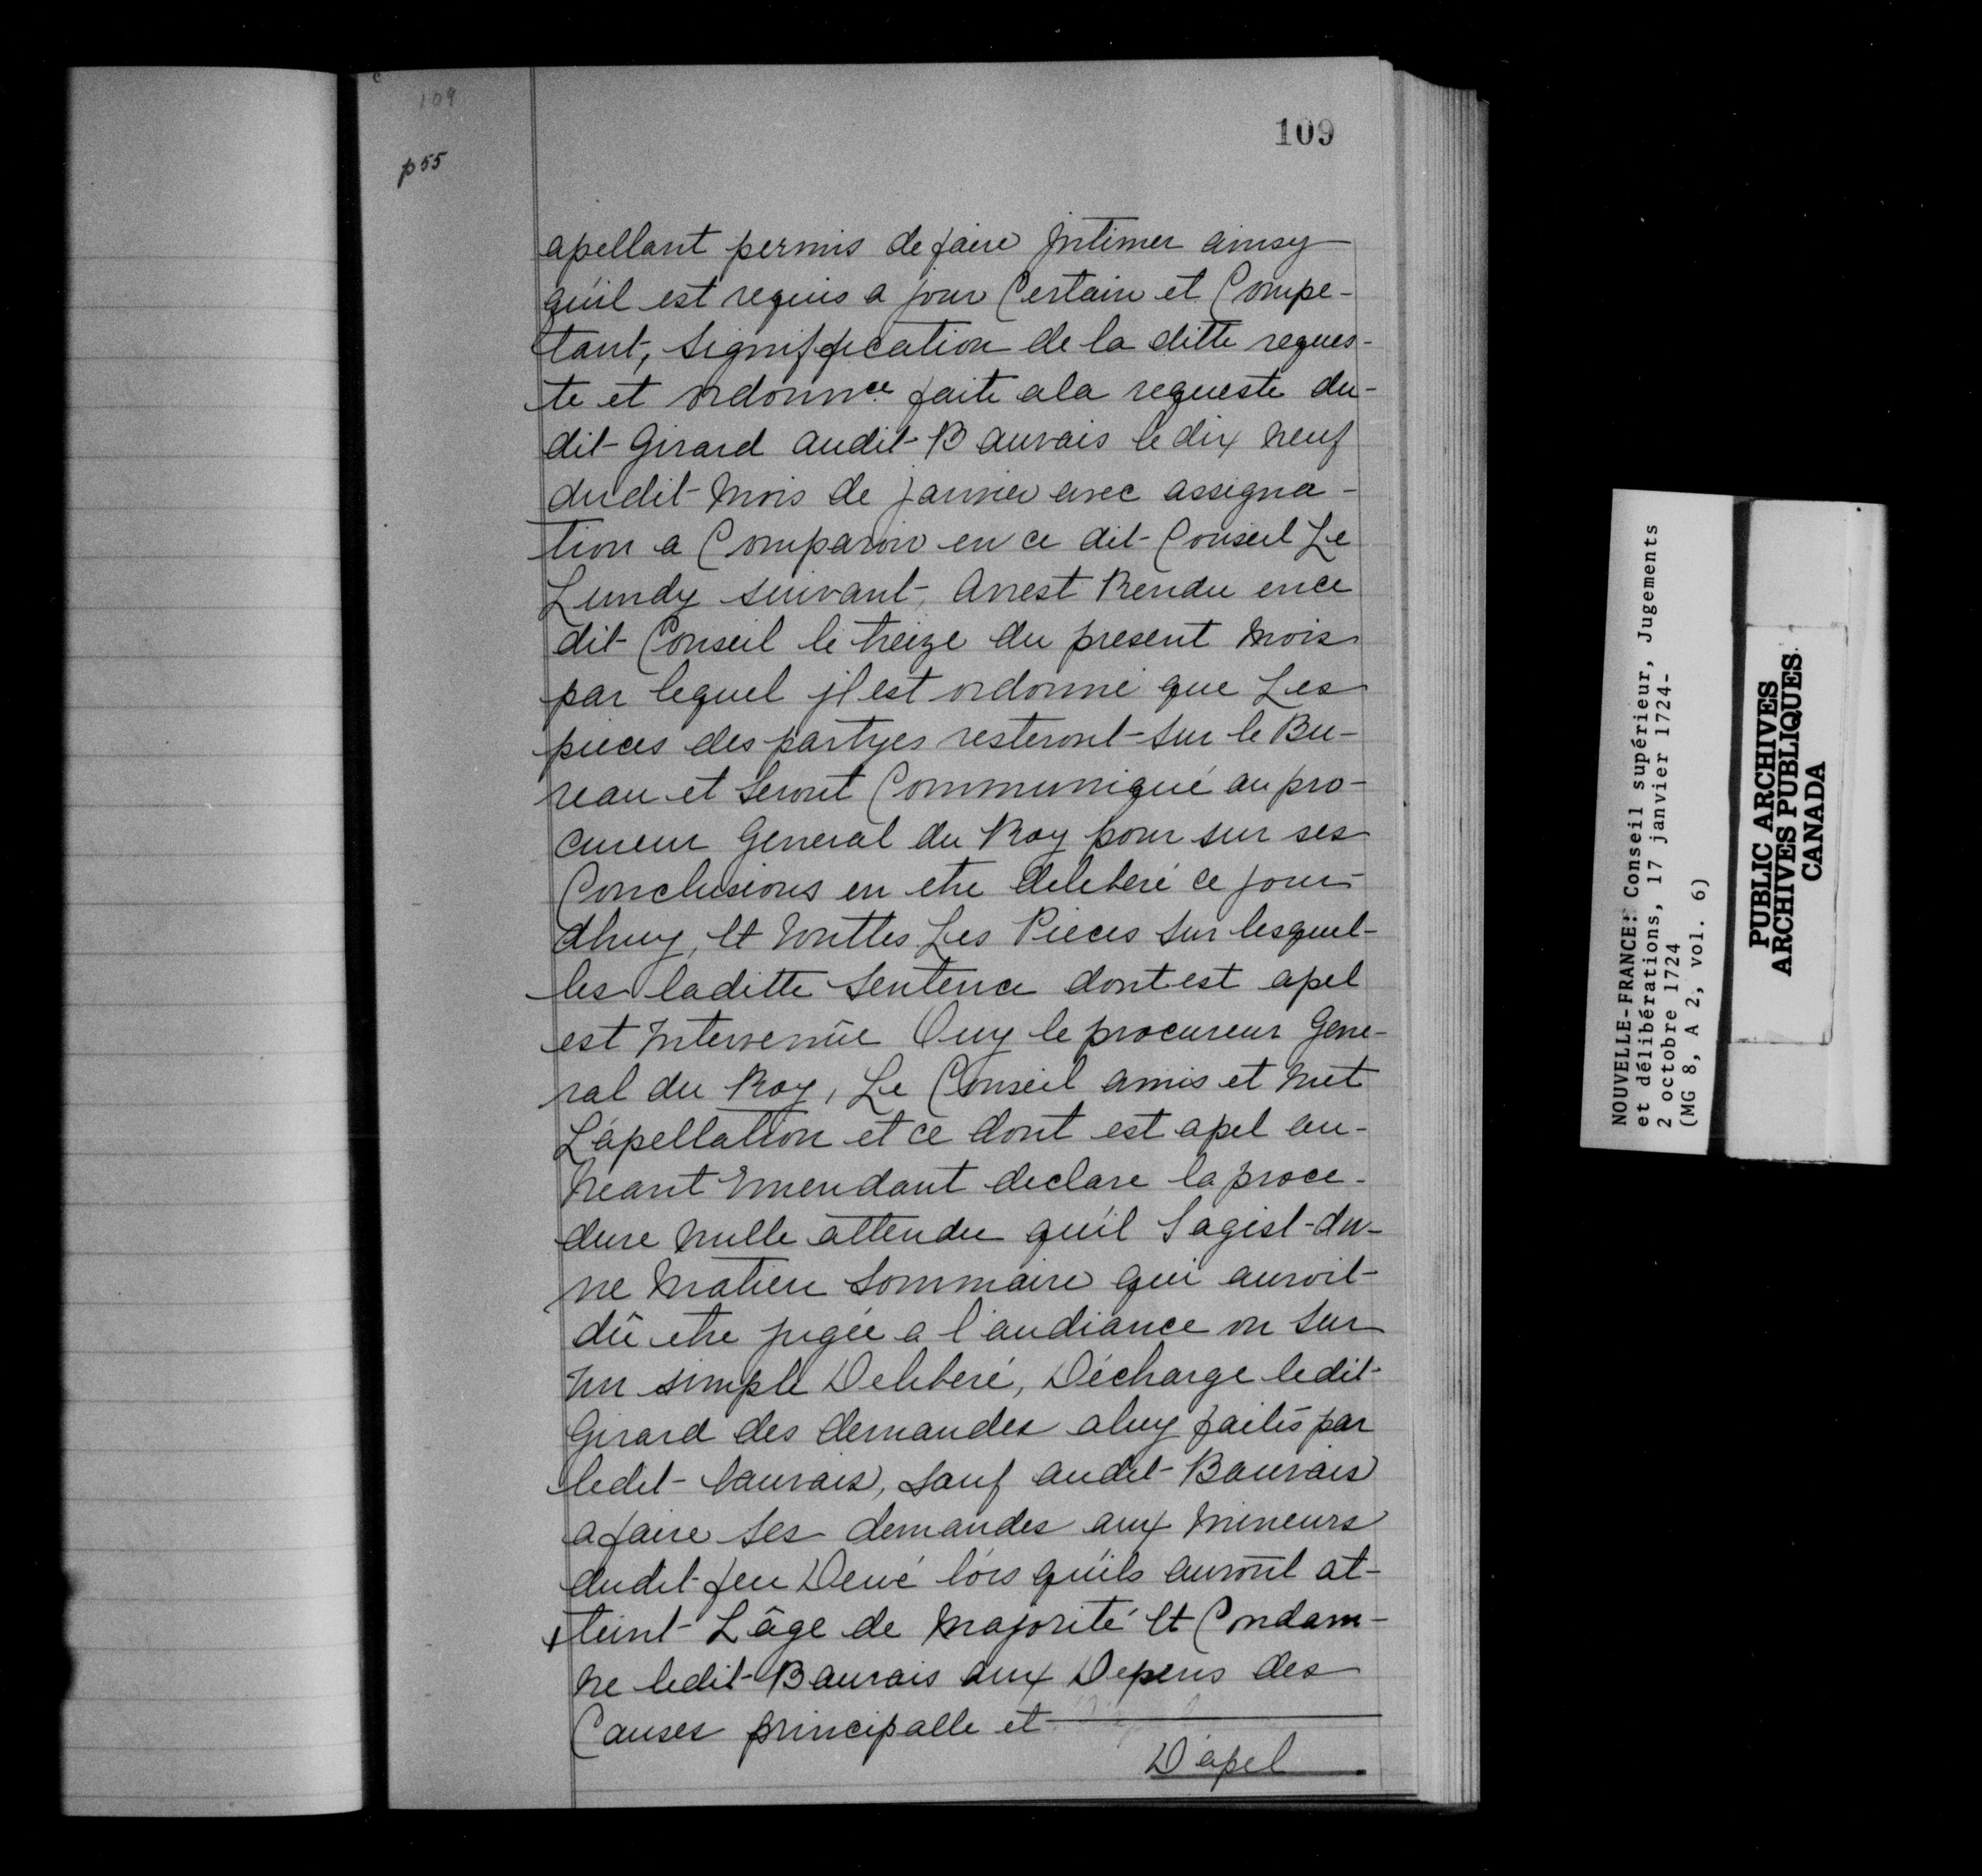 109
109
p 55
apellant permis de faire Jntimer ainsy
qu'il est requis a jour Certain et Compe-
tant, signiffication de la ditte reques-
te et ordonnce. faite ala requeste du-
dit Girard audit Bauvais le dix neuf
dudit mois de janvier avec assigna-
tion a Comparoir en ce dit Conseil Le
Lundy suivant, Arrest Rendu ence
dit Conseil le treize du present mois
par lequel jl est ordonné que Les
pieces des partyes resteront sur le Bu-
reau et seront Communiqué au pro-
cureur General du Roy pour sur ses
Conclusions en etre deliberé ce jour-
dhuy, et touttes Les Pieces sur lesquel-
les laditte sentence dont est apel
est Intervenüe Ouy le procureur Gene-
ral du Roy, Le Conseil amis et met
L'apellation et ce dont est apel au-
neant Emendant declare la proce-
dure nulle attendu qu'il Sagist du-
ne matiere sommaire qui auroit
dû etre jugée a l'audiance ou sur
un simple Deliberé, Décharge ledit
Girard des demandes aluy faites par
ledit bauvais, sauf audit Bauvais
a faire ses demandes aux mineurs
dudit feu Devé lors qu'ils auront at-
teint L'âge de majorité Et Condam-
ne ledit Bauvais aux Depens des
Causes principalle et
D'apel
NOUVELLE-FRANCE: Conseil supérieur, Jugements
et délibérations, 17 janvier 1724-
2 octobre 1724
(MG 8, A 2, vol. 6)
PUBLIC ARCHIVES
ARCHIVES PUBLIQUES
CANADA